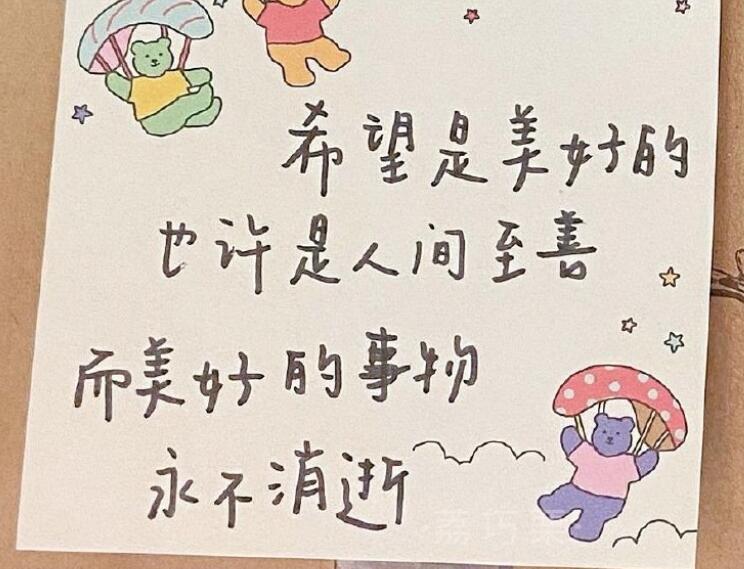 希望是美好的
也许是人间至善
而美好的事物
永不消逝